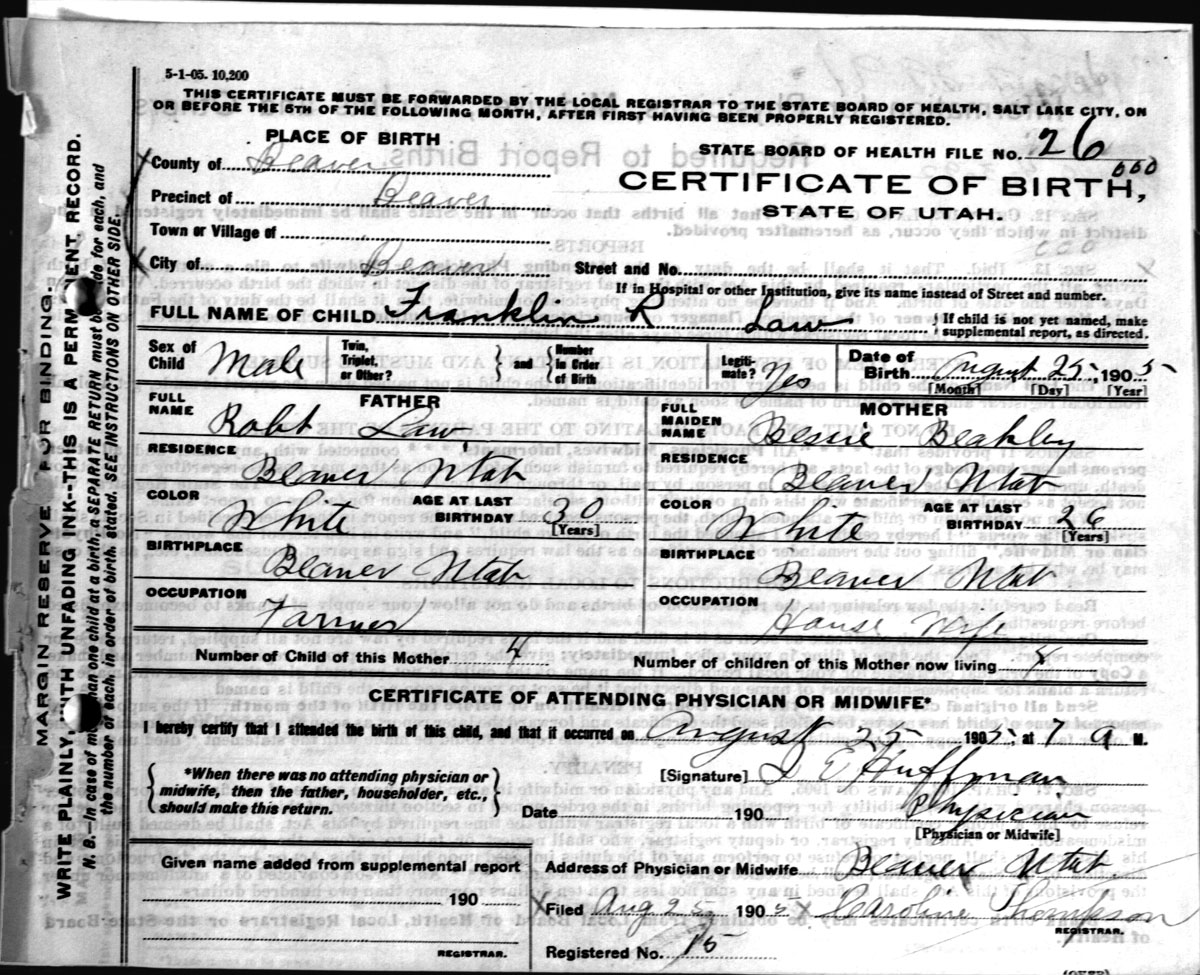 5-1-05. 10,200
THIS CERTIFICATE MUST BE FORWARDED BY THE LOCAL REGISTRAR TO THE STATE BOARD OF HEALTH, SALT LAKE CITY, ON
OR BEFORE THE 5TH OF THE FOLLOWING MONTH, AFTER FIRST HAVING BEEN PROPERLY REGISTERED.
PLACE OF BIRTH
STATE BOARD OF HEALTH FILE No. 26
000
County of Beaver
CERTIFICATE OF BIRTH,
Precinct of Beaver
STATE OF UTAH.
Town or Village of
City of Beaver Street and No.
If in Hospital or other Institution, give its name instead of Street and number.
FULL NAME OF CHILD Franklin R Law { If child is not yet named, make supplemental report, as directed.
Sex of Child Male Twin, Triplet, or Other? } and { Number in Order of Birth Legiti- mate? Yes Date of Birth August 25, 1905 [Month] [Day] [Year]
FATHER
FULL NAME Robt Law
RESIDENCE Beaver Utah
COLOR White AGE AT LAST BIRTHDAY 30 [Years]
BIRTHPLACE Beaver Utah
OCCUPATION Farmer
MOTHER
FULL MAIDEN NAME Bessie Beakley
RESIDENCE Beaver Utah
COLOR White AGE AT LAST BIRTHDAY 26 [Years]
BIRTHPLACE Beaver Utah
OCCUPATION House Wife
Number of Child of this Mother 4 Number of children of this Mother now living
CERTIFICATE OF ATTENDING PHYSICIAN OR MIDWIFE*
I hereby certify that I attended the birth of this child, and that it occurred on August 25 1905, at 7 a M.
{ *When there was no attending physician or midwife, then the father, householder, etc., should make this return. }
[Signature] E Huffman
Date 190 Physician
[Physician or Midwife]
Given name added from supplemental report
190
REGISTRAR.
Address of Physician or Midwife Beaver Utah
Filed Aug 25 1905 Caroline Thompson
REGISTRAR.
Registered No. 15
MARGIN RESERVE FOR BINDING.
WRITE PLAINLY, WITH UNFADING INK--THIS IS A PERMANENT RECORD.
N. B.--In case of more than one child at a birth, a SEPARATE RETURN must be made for each, and
the number of each, in order of birth, stated. SEE INSTRUCTIONS ON OTHER SIDE.